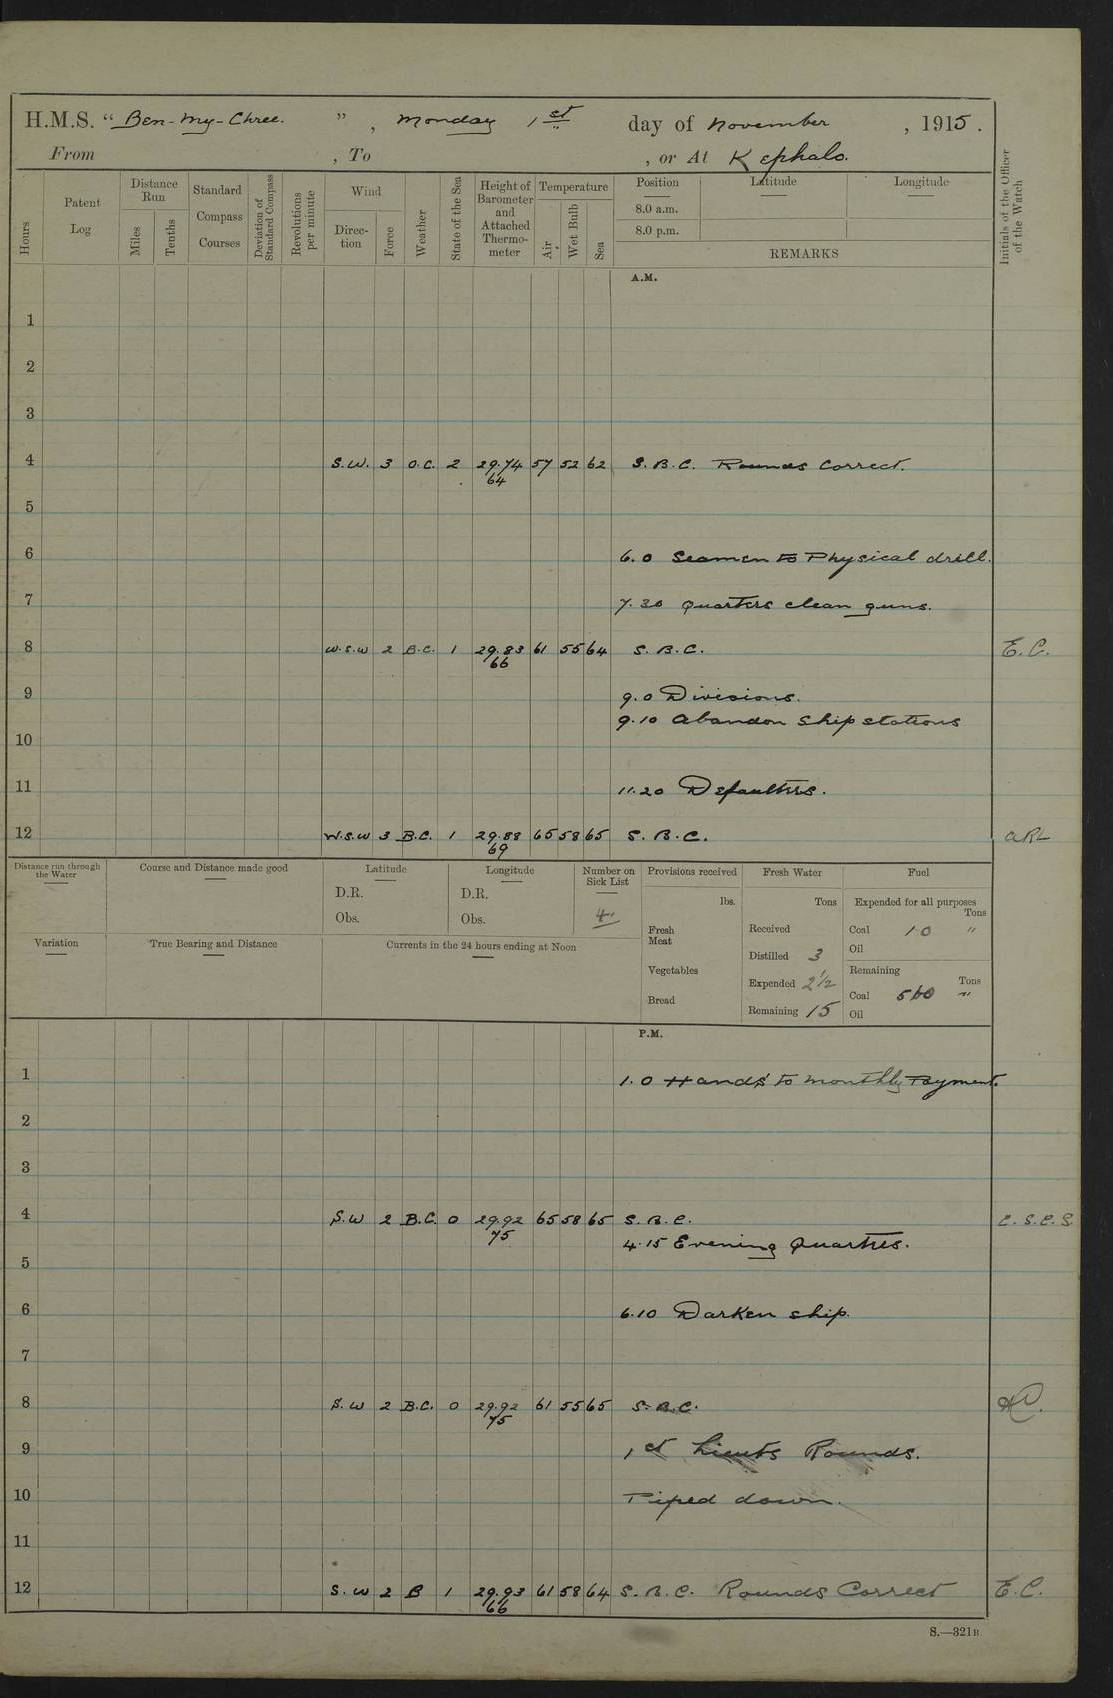 H.M.S. "Ben-my-Chree.", Monday 1st day of November, 1915.
From , To , or At Kephalo.
Hours
Patent Log
Distance Run
Miles
Tenths
Standard Compass Courses
Deviation of Standard Compass
Revolutions per minute
Wind
Direction
Force
Weather
State of the Sea
Height of Barometer and Attached Thermometer
Temperature
Air
Wet Bulb
Sea
Position Latitude Longitude
8.0 a.m.
8.0 p.m.
REMARKS
Initials of the Officer of the Watch
A.M.
1
2
3
4 S.W. 3 O.C. 2 29.74 57 52 62 S.B.C. Rounds Correct.
64
5
6 6.0 Seamen to Physical drill.
7 7.30 Quarters clean guns.
8 W.S.W 2 B.C. 1 29.83 61 55 64 S.B.C. E.C.
66
9 9.0 Divisions.
9.10 Abandon Ship stations
10
11 11.20 Defaulters.
12 W.S.W 3 B.C. 1 29.88 65 58 65 S.B.C. ARL
69
Distance run through the Water
Course and Distance made good
Latitude
D.R.
Obs.
Longitude
D.R.
Obs.
Number on Sick List
4
Provisions received
lbs.
Fresh Meat
Vegetables
Bread
Fresh Water
Tons
Received
Distilled 3
Expended 2½
Remaining 15
Fuel
Expended for all purposes
Tons
Coal 10 "
Oil
Remaining
Tons
Coal 560 "
Oil
Variation
True Bearing and Distance
Currents in the 24 hours ending at Noon
P.M.
1 1.0 Hands to monthly Payment.
2
3
4 S.W 2 B.C. 0 29.92 65 58 65 S.B.C. C.S.C.S.
75
4.15 Evening Quarters.
5
6 6.10 Darken ship.
7
8 S.W 2 B.C. 0 29.92 61 55 65 S.B.C.
75
9 1st Lieuts Rounds.
10 Piped down.
11
12 S.W 2 B 1 29.93 61 58 64 S.B.C. Rounds Correct E.C.
66
S.—321B